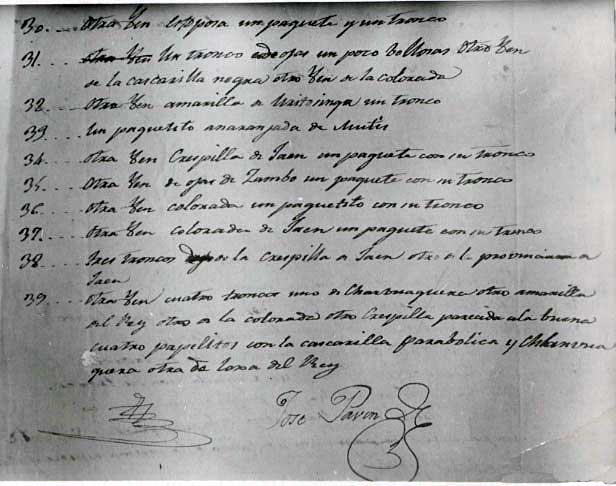 30. otra Yen lopposa un paquete y un tronco
31. otra Yen Un tronco de ojas un poco vellosas otro Yen
de la cascarilla negra otro Yen de la colorada
32. otra Yen amarilla de Uritusinga un tronco
33. Un paquetito anaranjada de Mutis
34. otra Yen Crespilla de Jaen un paquete con su tronco
35. otra Yen de ojas de Zambo un paquete con su tronco
36. otra Yen colorada un paquetito con su tronco
37. otra Yen colorada de Jaen un paquete con su tronco
38. tres troncos de la crespilla de Jaen otro de la provincia de
Jaen
39. otra Yen cuatro troncos uno de Charuaquera otro amarilla
del Rey otro de la colorada otro Crespilla parecida ala buena
cuatro papelitos con la cascarilla parabolica y
quera otra de Loxa del Rey
Jose Pavon